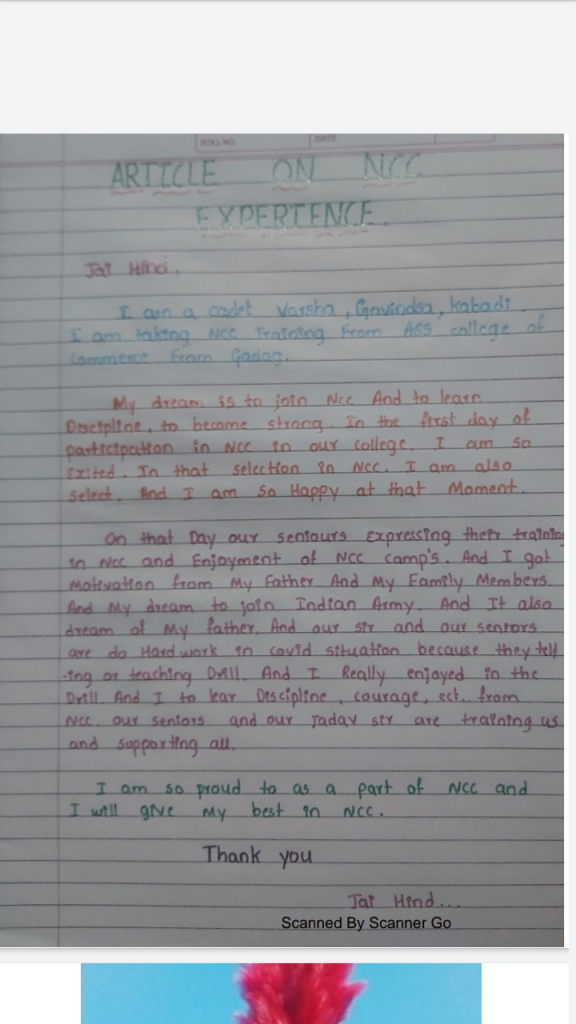 ROLL NO.
DATE
ARTICLE ON NCC
EXPERIENCE.
Jai Hind,
I am a cadet Varsha, Govindsa, kabadi.
I am taking NCC Training From ASS college of
Commerce From Gadag.
My dream is to join Ncc And to learn
Discipline, to become strong. In the first day of
participation in NCC in our college. I am so
Exited. In that selection in NCC. I am also
select. And I am so Happy at that Moment.
On that Day our seniours expressing their training
in NCC and Enjoyment of NCC camp's. And I got
Motivation from My Father And My Family Members.
And My dream to join Indian Army. And It also
dream of My father. And our sir and our seniors
are do Hard work in covid situation because they tell
-ing or teaching Drill. And I Really enjoyed in the
Drill. And I to lear Discipline, courage, ect.. from
NCC. our seniors and our Jadav sir are training us
and supporting all.
I am so proud to as a part of NCC and
I will give My best in NCC.
Thank you
Jai Hind...
Scanned By Scanner Go